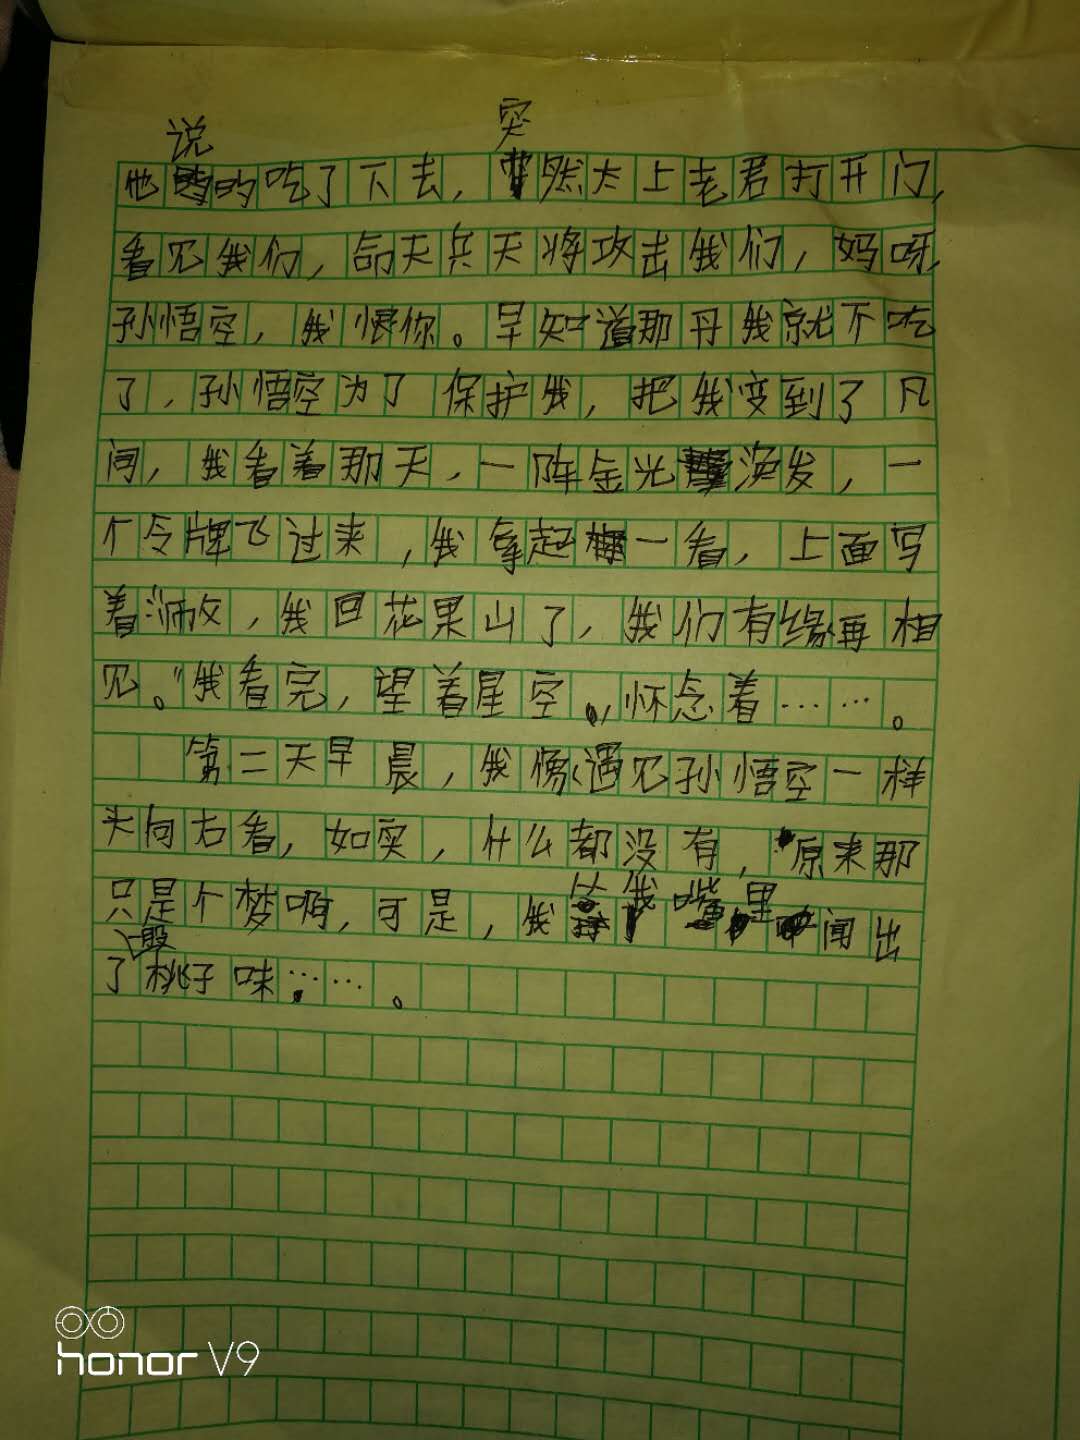 他说的吃了下去，突然太上老君打开门，
看见我们，命天兵天将攻击我们，妈呀，
孙悟空，我恨你。早知道那丹我就不吃
了，孙悟空为了保护我，把我变到了凡
间，我看着那天，一阵金光涣发，一
个令牌飞过来，我拿起一看，上面写
着“师父，我回花果山了，我们有缘再相
见。”我看完，望着星空，怀念着……。
第二天早晨，我像遇见孙悟空一样
头向右看，如实，什么都没有，原来那
只是个梦啊，可是，我从我嘴里闻出
了一股桃子味……。
honor V9